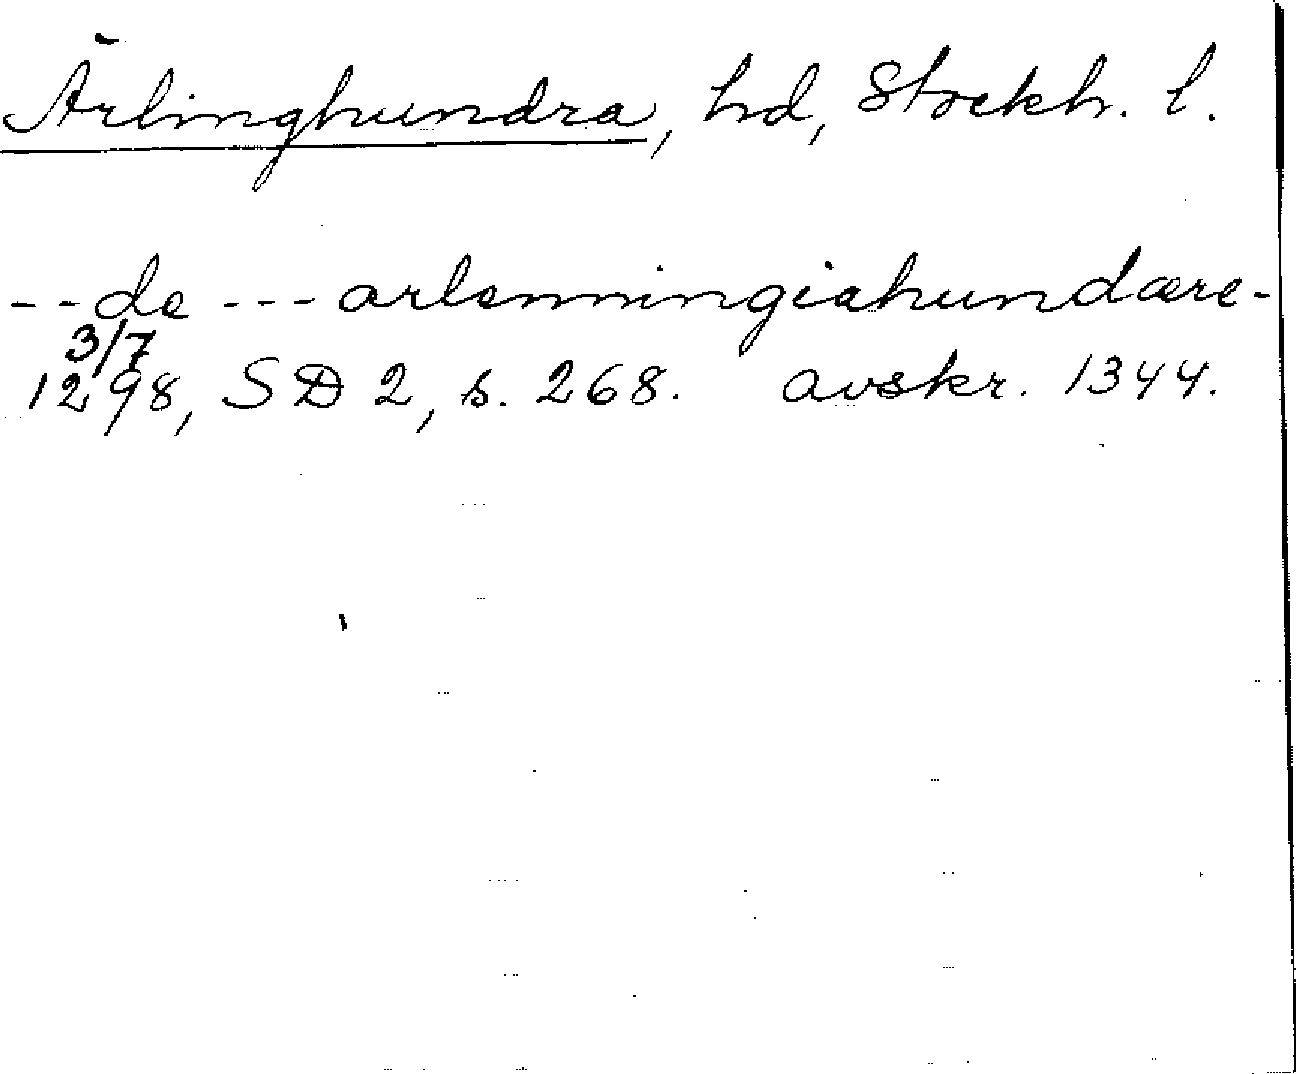 Ärlinghundra, hd, Stockh. l.
--de --- arlenningiahundære-
3/7
1298, SD 2, s. 268. avskr. 1344.